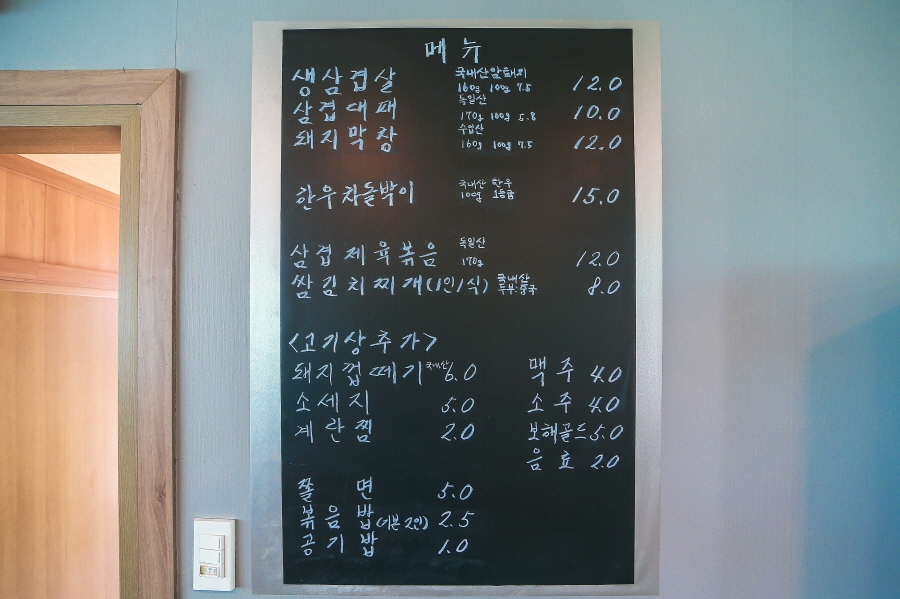 메뉴
생삼겹살 국내산암퇘지 160g 100g 7.5 12.0
삼겹대패 독일산 170g 100g 5.8 10.0
돼지막창 수입산 160g 100g 7.5 12.0
한우차돌박이 국내산 한우 100g 1등급 15.0
삼겹제육볶음 독일산 170g 12.0
쌈김치찌개(1인1식) 국내산 두부:중국 8.0
<고기상추가>
돼지껍떼기 국내산 6.0
소세지 5.0
계란찜 2.0
맥주 4.0
소주 4.0
보해골드 5.0
음료 2.0
쫄면 5.0
볶음밥(기본2인) 2.5
공기밥 1.0